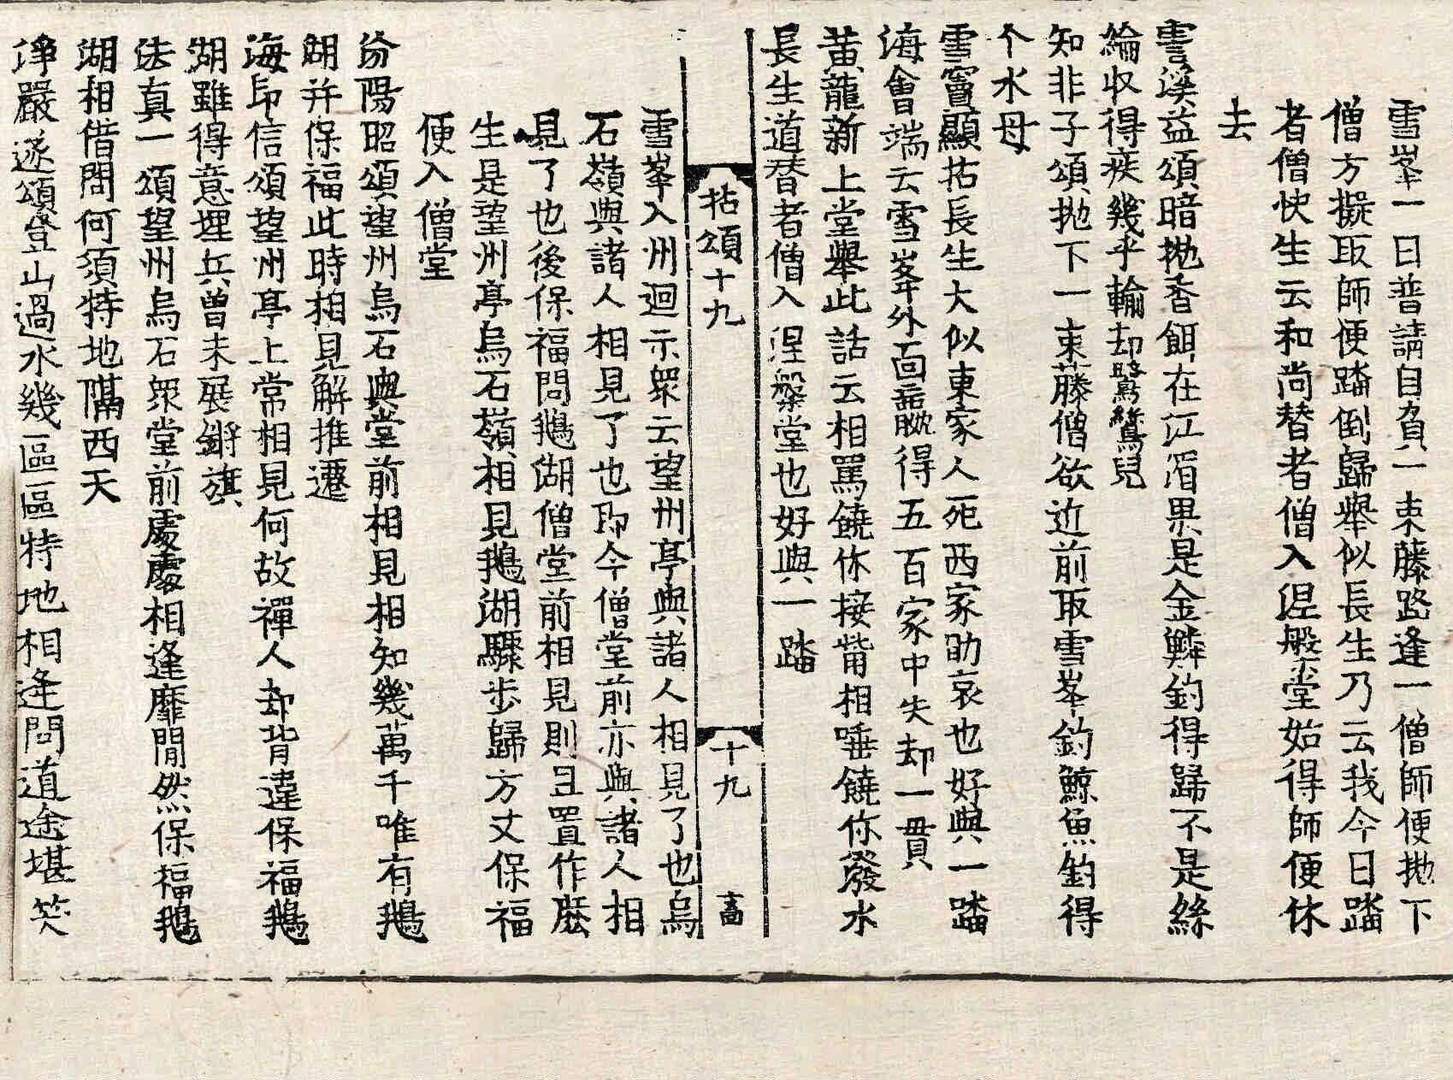 雪峯一日普請自負一束藤路逢一僧師便拋下
僧方擬取師便踏倒歸擧似長生乃云我今日踏
者僧快生云和尚替者僧入涅般堂始得師便休
去
雪溪益頌暗拋香餌在江湄果是金鱗釣得歸不是絲
綸収得疾幾乎輸却鷺鷥兒
知非子頌拋下一束藤僧欲近前取雪峯釣鯨魚釣得
个水母
雪竇顯拈長生大似東家人死西家助哀也好與一踏
海會端云雪峯外面贏得五百家中失却一貫
黃龍新上堂擧此話云相罵饒休接觜相唾饒你潑水
長生道替者僧入涅槃堂也好與一踏
拈頌十九
十九
高
雪峯入州迴示衆云望州亭與諸人相見了也烏
石嶺與諸人相見了也即今僧堂前亦與諸人相
見了也後保福問鵝湖僧堂前相見則且置作麽
生是望州亭烏石嶺相見鵝湖驟步歸方丈保福
便入僧堂
汾陽昭頌望州烏石與堂前相見相知幾萬千唯有鵝
湖并保福此時相見解推遷
海印信頌望州亭上常相見何故禪人却背違保福鵝
湖雖得意埋兵曾未展鏘旗
法真一頌望州烏石衆堂前處處相逢靡閒然保福鵝
湖相借問何須特地隔西天
淨嚴遂頌登山過水幾區區特地相逢問道途堪笑